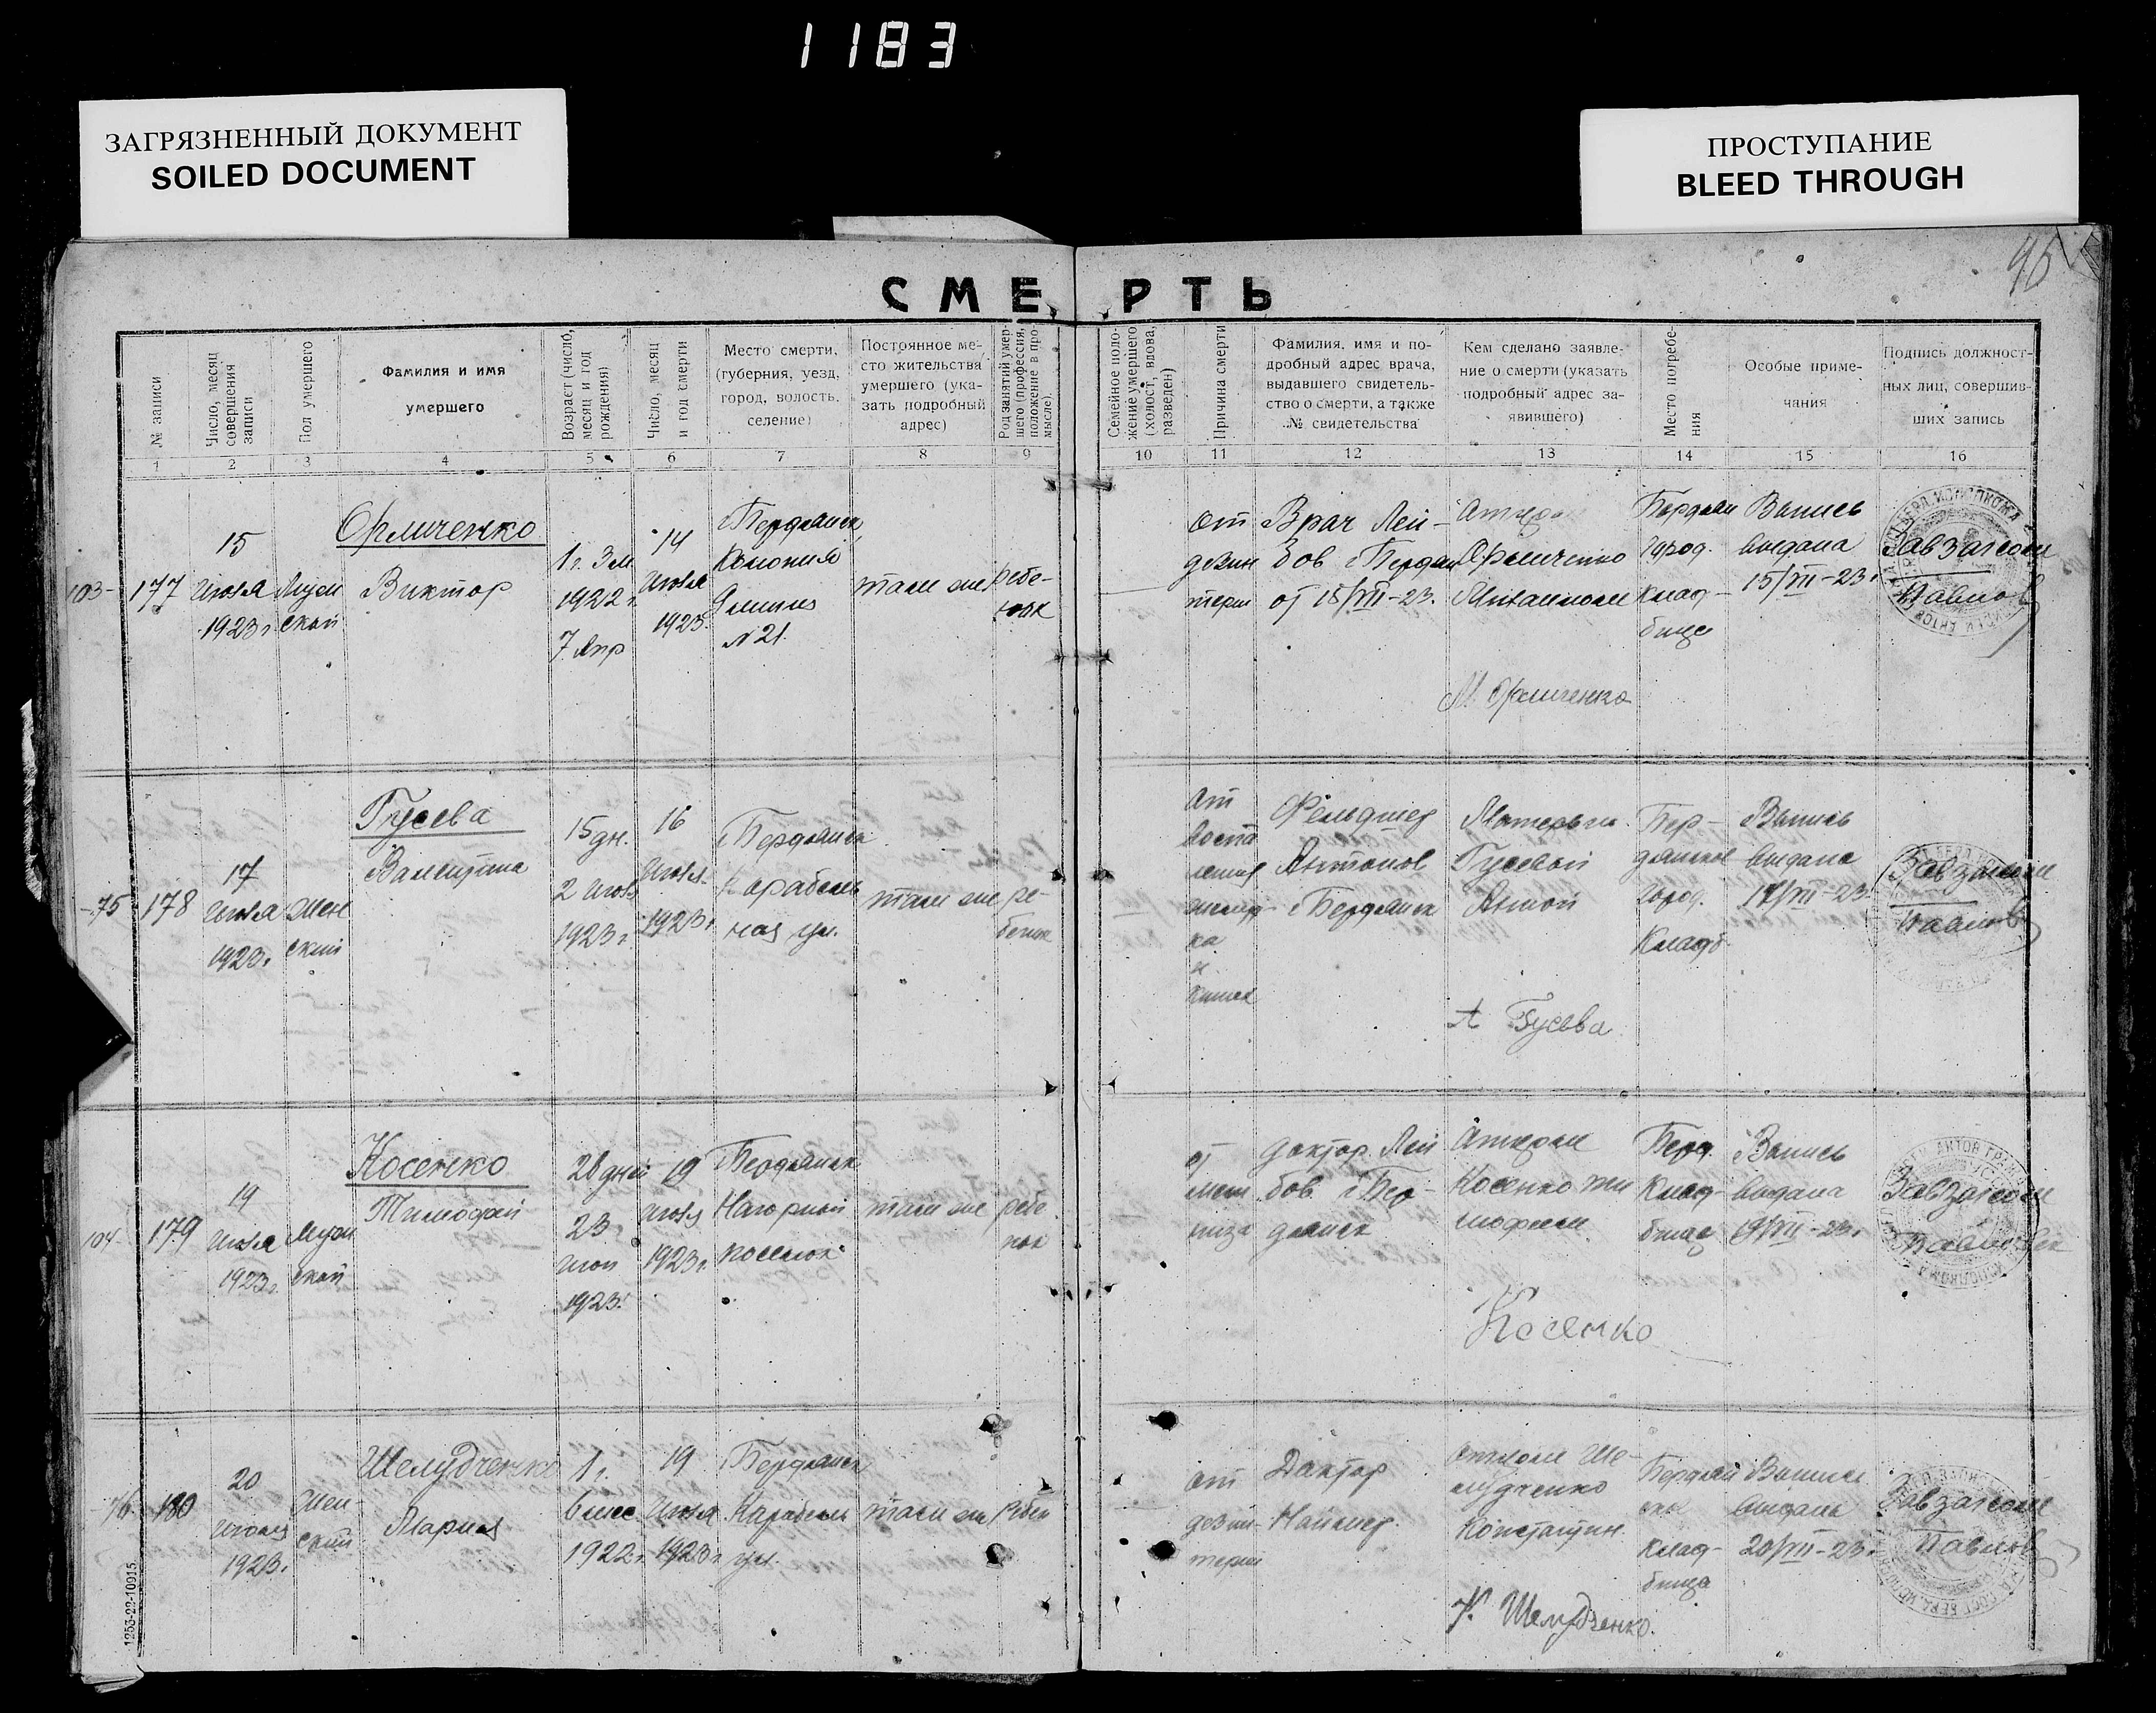 1183
ЗАГРЯЗНЕННЫЙ ДОКУМЕНТ
SOILED DOCUMENT
ПРОСТУПАНИЕ
BLEED THROUGH
СМЕРТЬ
№ записи
Число, месяц совершения записи
Пол умершего
Фамилия и имя
умершего
Возраст (число, месяц и год рождения)
Число, месяц и год смерти
Место смерти,
(губерния, уезд,
город, волость,
селение)
Постоянное ме-
сто жительства
умершего (ука-
зать подробный
адрес)
Род занятий умер-
шего (профессия,
положение в про-
мысле).
Семейное поло-
жение умершего
(холост, вдова,
разведен)
Причина смерти
Фамилия, имя и по-
дробный адрес врача,
выдавшего свидетель-
ство о смерти, а также
№ свидетельства
Кем сделано заявле-
ние о смерти (указать
подробный адрес за-
явившего)
Место погребе-
ния
Особые приме-
чания
Подпись должност-
ных лиц, совершив-
ших запись
1 2 3 4 5 6 7 8 9 10 11 12 13 14 15 16
103-
177
15
июля
1923 г.
Муж
ской
Виктор
1 г. 3 м
1922 г.
7 Апр
14
июля
1923.
Бердянск,
Колония
№ 21.
там же
ребе-
нок
от
дезин
терии
Врач Лей-
бов г Бердян
от 15/VII-23.
город.
Клад-
бище
Выпись
выдана
15/VII-23.
Завзагсом
Павлов
75
178
17
июля
1923г.
Жен
ский
Гусева
Валентина
15 дн.
2 июля
1923 г.
16
июля
1923г.
Бердянск
Карабель
ная ул.
там же
ре-
бенок
Фельдшер
Антонов
г Бердянск
Матерью
Гусевой
Анной
А Гусева
Бер-
дянское
город.
Кладб
Выпись
выдана
17/VII-23.
Завзагсом
Павлов
104
179
19
июля
1923г.
Муж
ской
Косенко
Тимофей
26 дней
23
июн
1923.
19
июля
1923г.
Бердянск
Нагорный
поселок
там же
ребе
нок
Доктор Лей
бов. г Бер-
дянск
Отцом
Косенко Ти
мофеем
Косенко
Берд.
Клад-
бище
Выпись
выдана
19/VII-23.
Завзагсом
76
180
20
июля
1923.
Жен
ский
Шелудченко
Мария
1 г.
6 мес
1922г.
19
июля
1923г.
Бердянск
Карабель
ул.
там же
ребен
от
дезин-
терии
Доктор
Отцом Ше-
лудченко
Константин.
К. Шелудченко.
Клад-
бище
Выпись
выдана
20/VII-23.
Завзагсом
Павлов
1253-22-10915